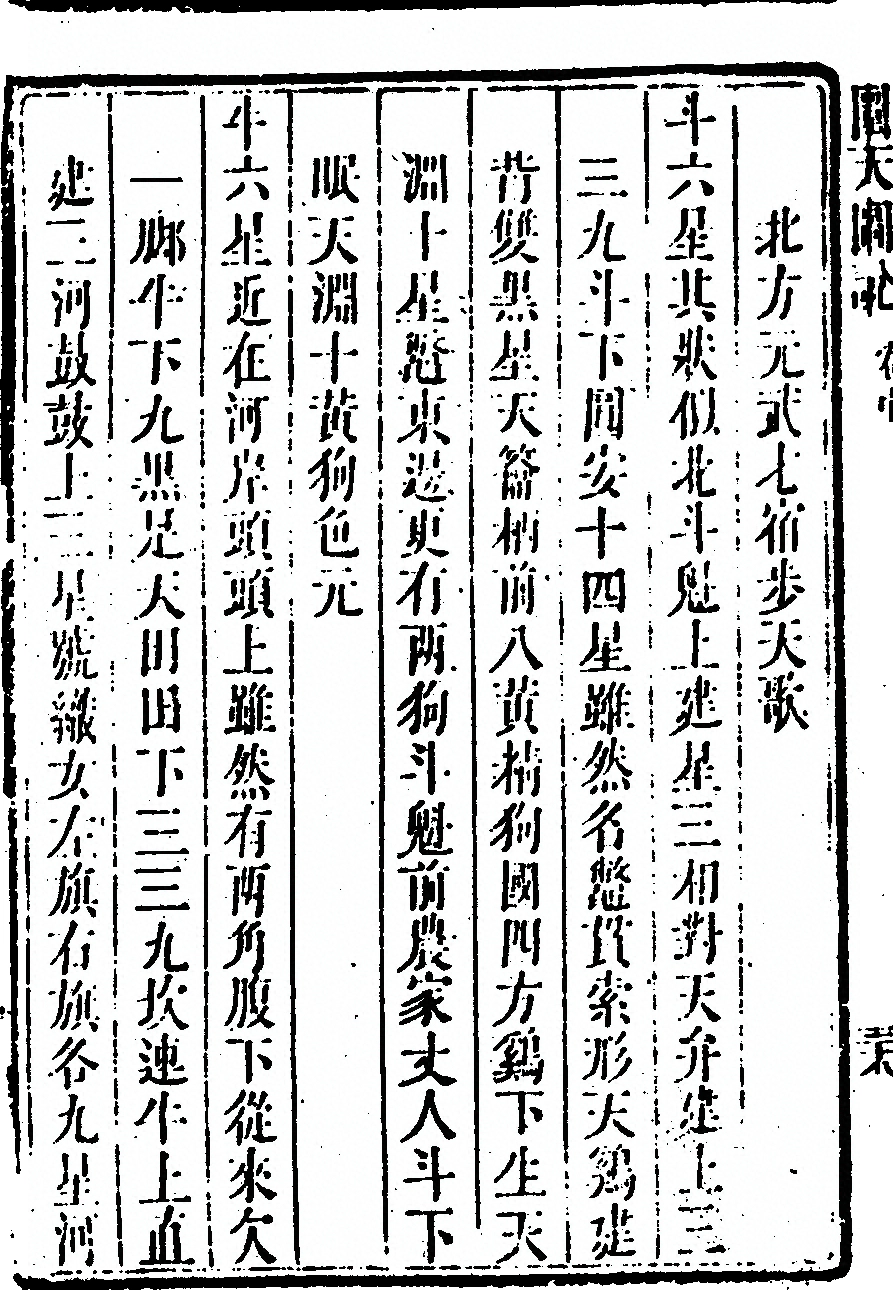 北方元武七宿步天歌
斗六星其狀似北斗魁上建星三相對天弁建上三
三九斗下圓安十四星雖然名鼈貫索形天鷄建
背雙黑星天籥柄前八黃精狗國四方鷄下生天
淵十星鼈東邊更有兩狗斗魁前農家丈人斗下
眠天淵十黃狗色元
牛六星近在河岸頭頭上雖然有兩角腹下從來欠
一脚牛下九黑是天田田下三三九坎連牛上直
建三河鼓鼓上三星號織女左旗右旗各九星河